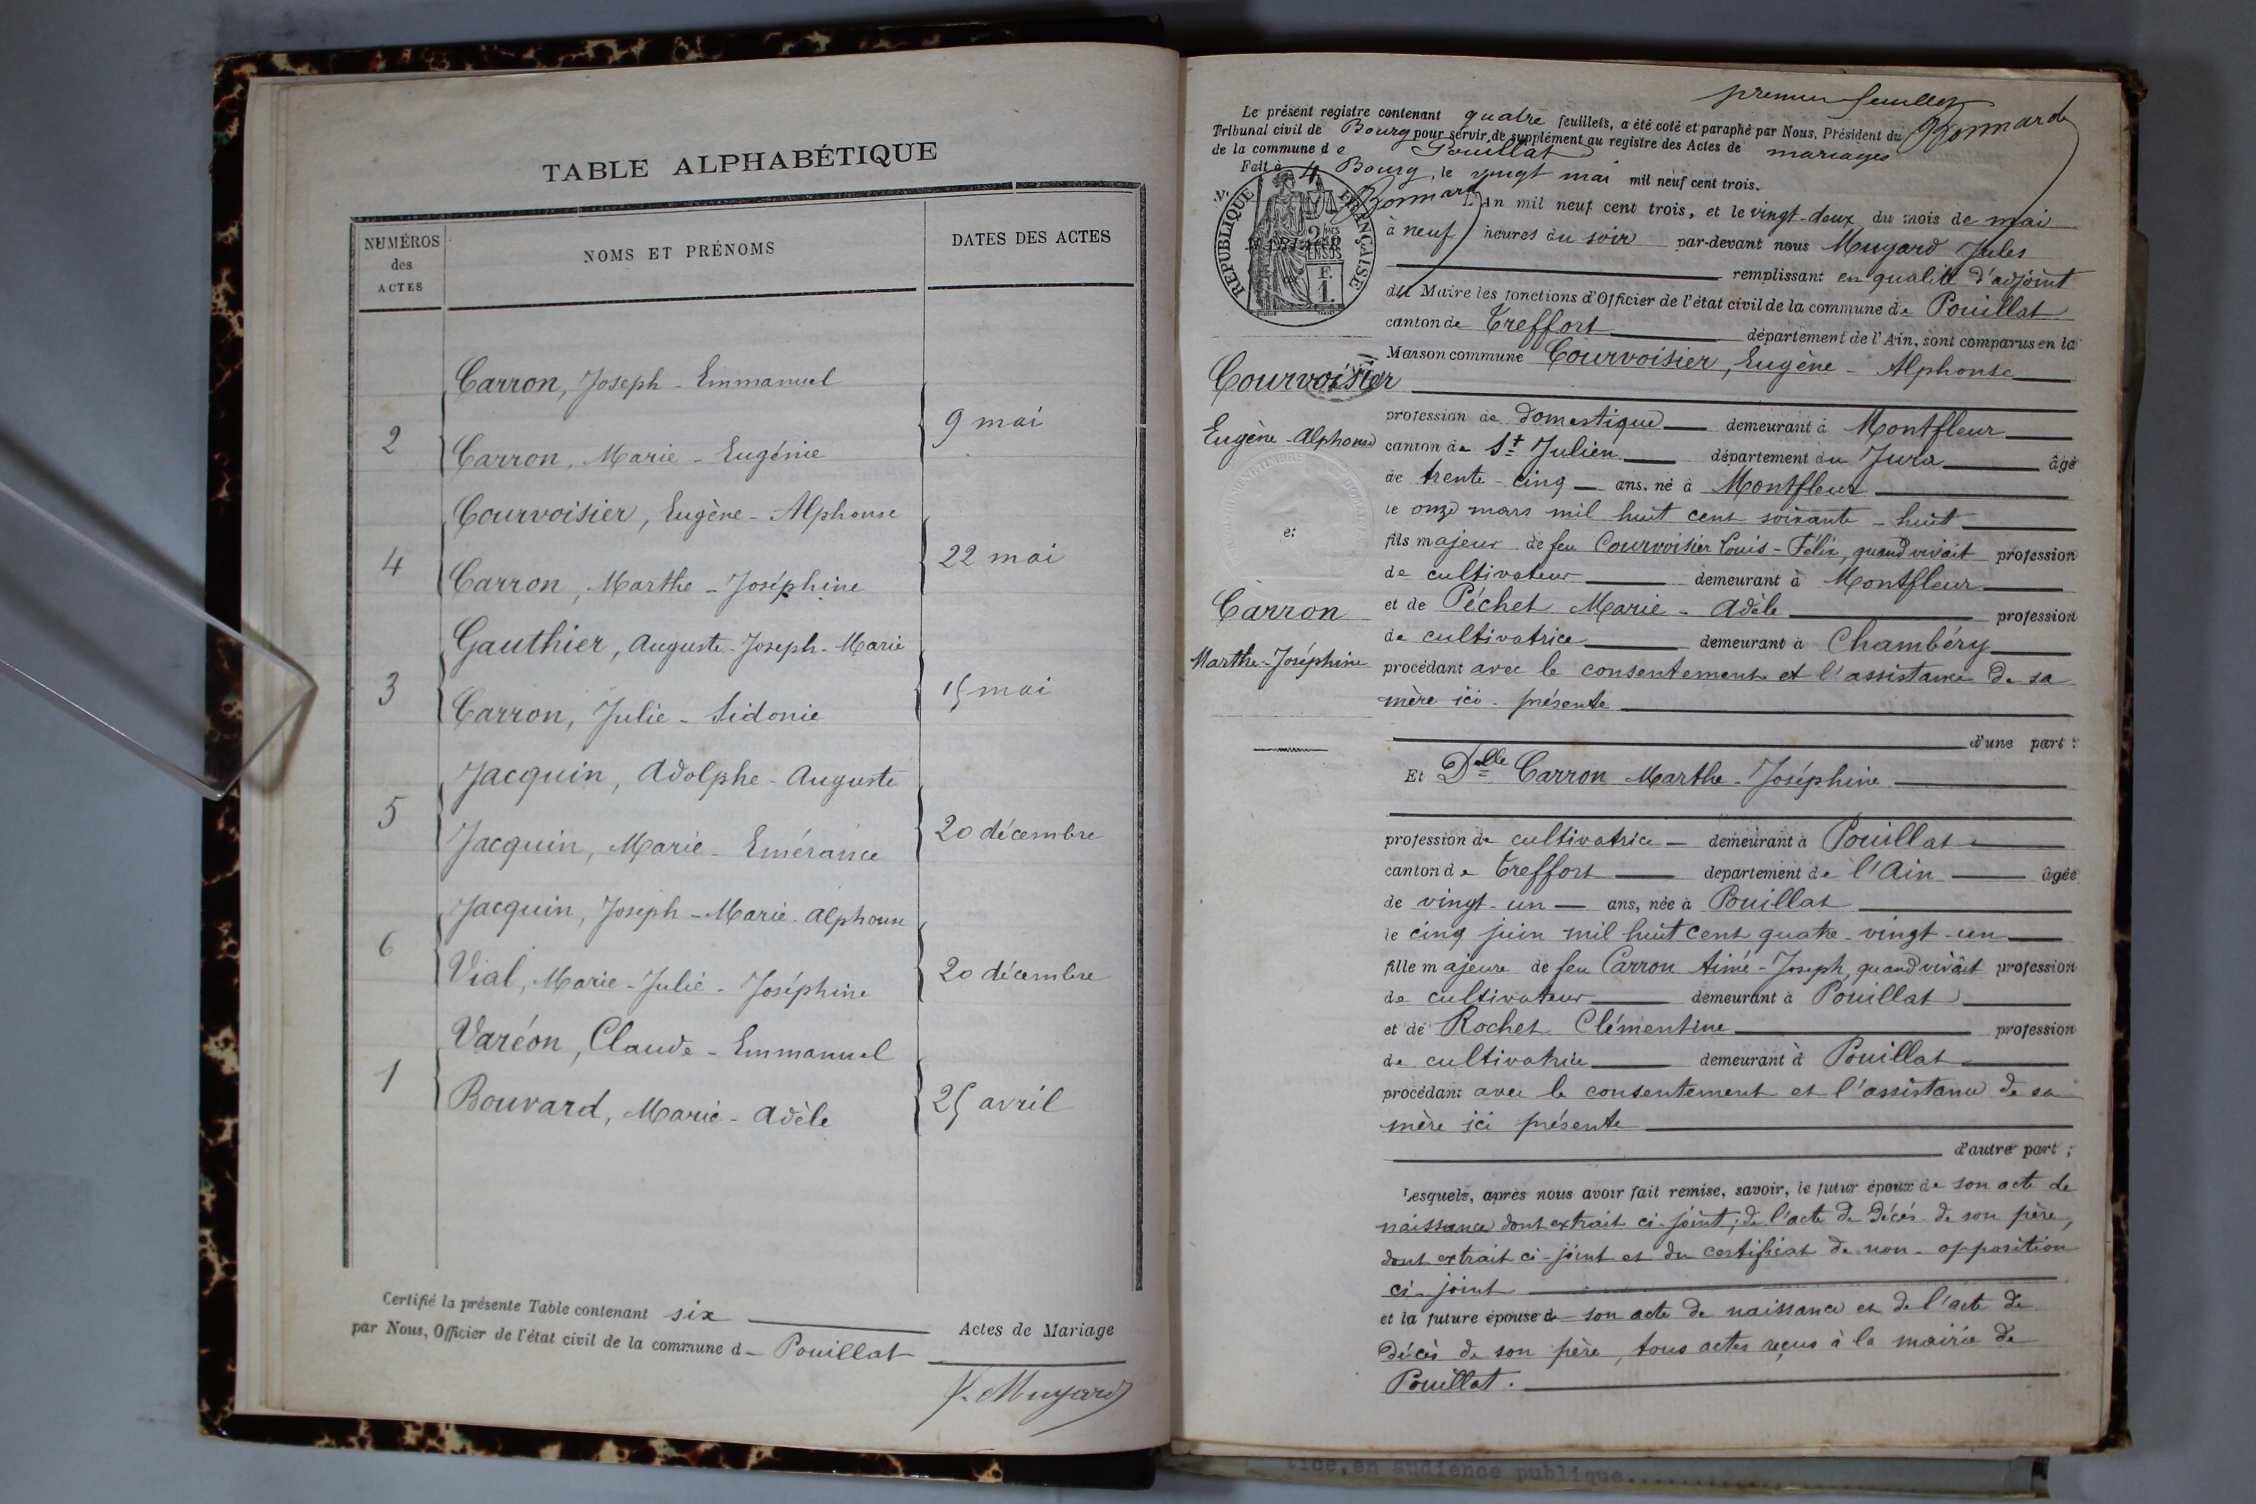 TABLE ALPHABÉTIQUE
NUMÉROS des ACTES
NOMS ET PRÉNOMS
DATES DES ACTES
Carron, Joseph - Emmanuel
2
9 mai
Carron, Marie - Eugénie
Courvoisier, Eugène - Alphonse
4
22 mai
Carron, Marthe - Joséphine
Gauthier, Auguste - Joseph - Marie
3
15 mai
Carron, Julie - Sidonie
Jacquin, Adolphe - Auguste
5
20 décembre
Jacquin, Marie - Emérance
Jacquin, Joseph - Marie - Alphonse
6
20 décembre
Vial, Marie - Julie - Joséphine
Varéon, Claude - Emmanuel
1
25 avril
Bouvard, Marie - Adèle
Certifié la présente Table contenant six Actes de Mariage
par Nous, Officier de l'état civil de la commune d Pouillat
J. Mugard
premier feuillet
Le présent registre contenant quatre feuillets, a été coté et paraphé par Nous, Président du
Bonnard
Tribunal civil de Bourg pour servir de supplément au registre des Actes de mariages
de la commune de Pouillat
Fait à Bourg, le vingt mai mil neuf cent trois.
Bonnard
N° 4
RÉPUBLIQUE FRANÇAISE
MARIAGE
2 DES
EN SUS
F.
1.
L'An mil neuf cent trois, et le vingt-deux du mois de mai
à neuf heures du soir par-devant nous Mugard Jules
remplissant en qualité d'adjoint
du Maire les fonctions d'Officier de l'état civil de la commune de Pouillat
canton de Treffort département de l'Ain, sont comparus en la
Maison commune Courvoisier, Eugène - Alphonse
Courvoisier
Eugène - Alphonse
et
Carron
Marthe - Joséphine
profession de domestique demeurant à Montfleur
canton de St Julien département du Jura âgé
de trente - cinq ans, né à Montfleur
le onze mars mil huit cent soixante - huit
fils majeur de feu Courvoisier Louis - Félix, quand vivait profession
de cultivateur demeurant à Montfleur
et de Péchet Marie - Adèle profession
de cultivatrice demeurant à Chambéry
procédant avec le consentement et l'assistance de sa
mère ici - présente
d'une part :
Et Delle Carron Marthe - Joséphine
profession de cultivatrice demeurant à Pouillat
canton de Treffort département de l'Ain âgée
de vingt - un ans, née à Pouillat
le cinq juin mil huit cent quatre - vingt - un
fille majeure de feu Carron Aimé - Joseph, quand vivait profession
de cultivateur demeurant à Pouillat
et de Rochet Clémentine profession
de cultivatrice demeurant à Pouillat
procédant avec le consentement et l'assistance de sa
mère ici présente
d'autre part ;
Lesquels, après nous avoir fait remise, savoir, le futur époux de son acte de
naissance dont extrait ci-joint ; de l'acte de décès de son père,
dont extrait ci-joint et du certificat de non - opposition
ci-joint
et la future épouse de son acte de naissance et de l'acte de
décès de son père, tous actes reçus à la mairie de
Pouillat.
tice, en audience publique......